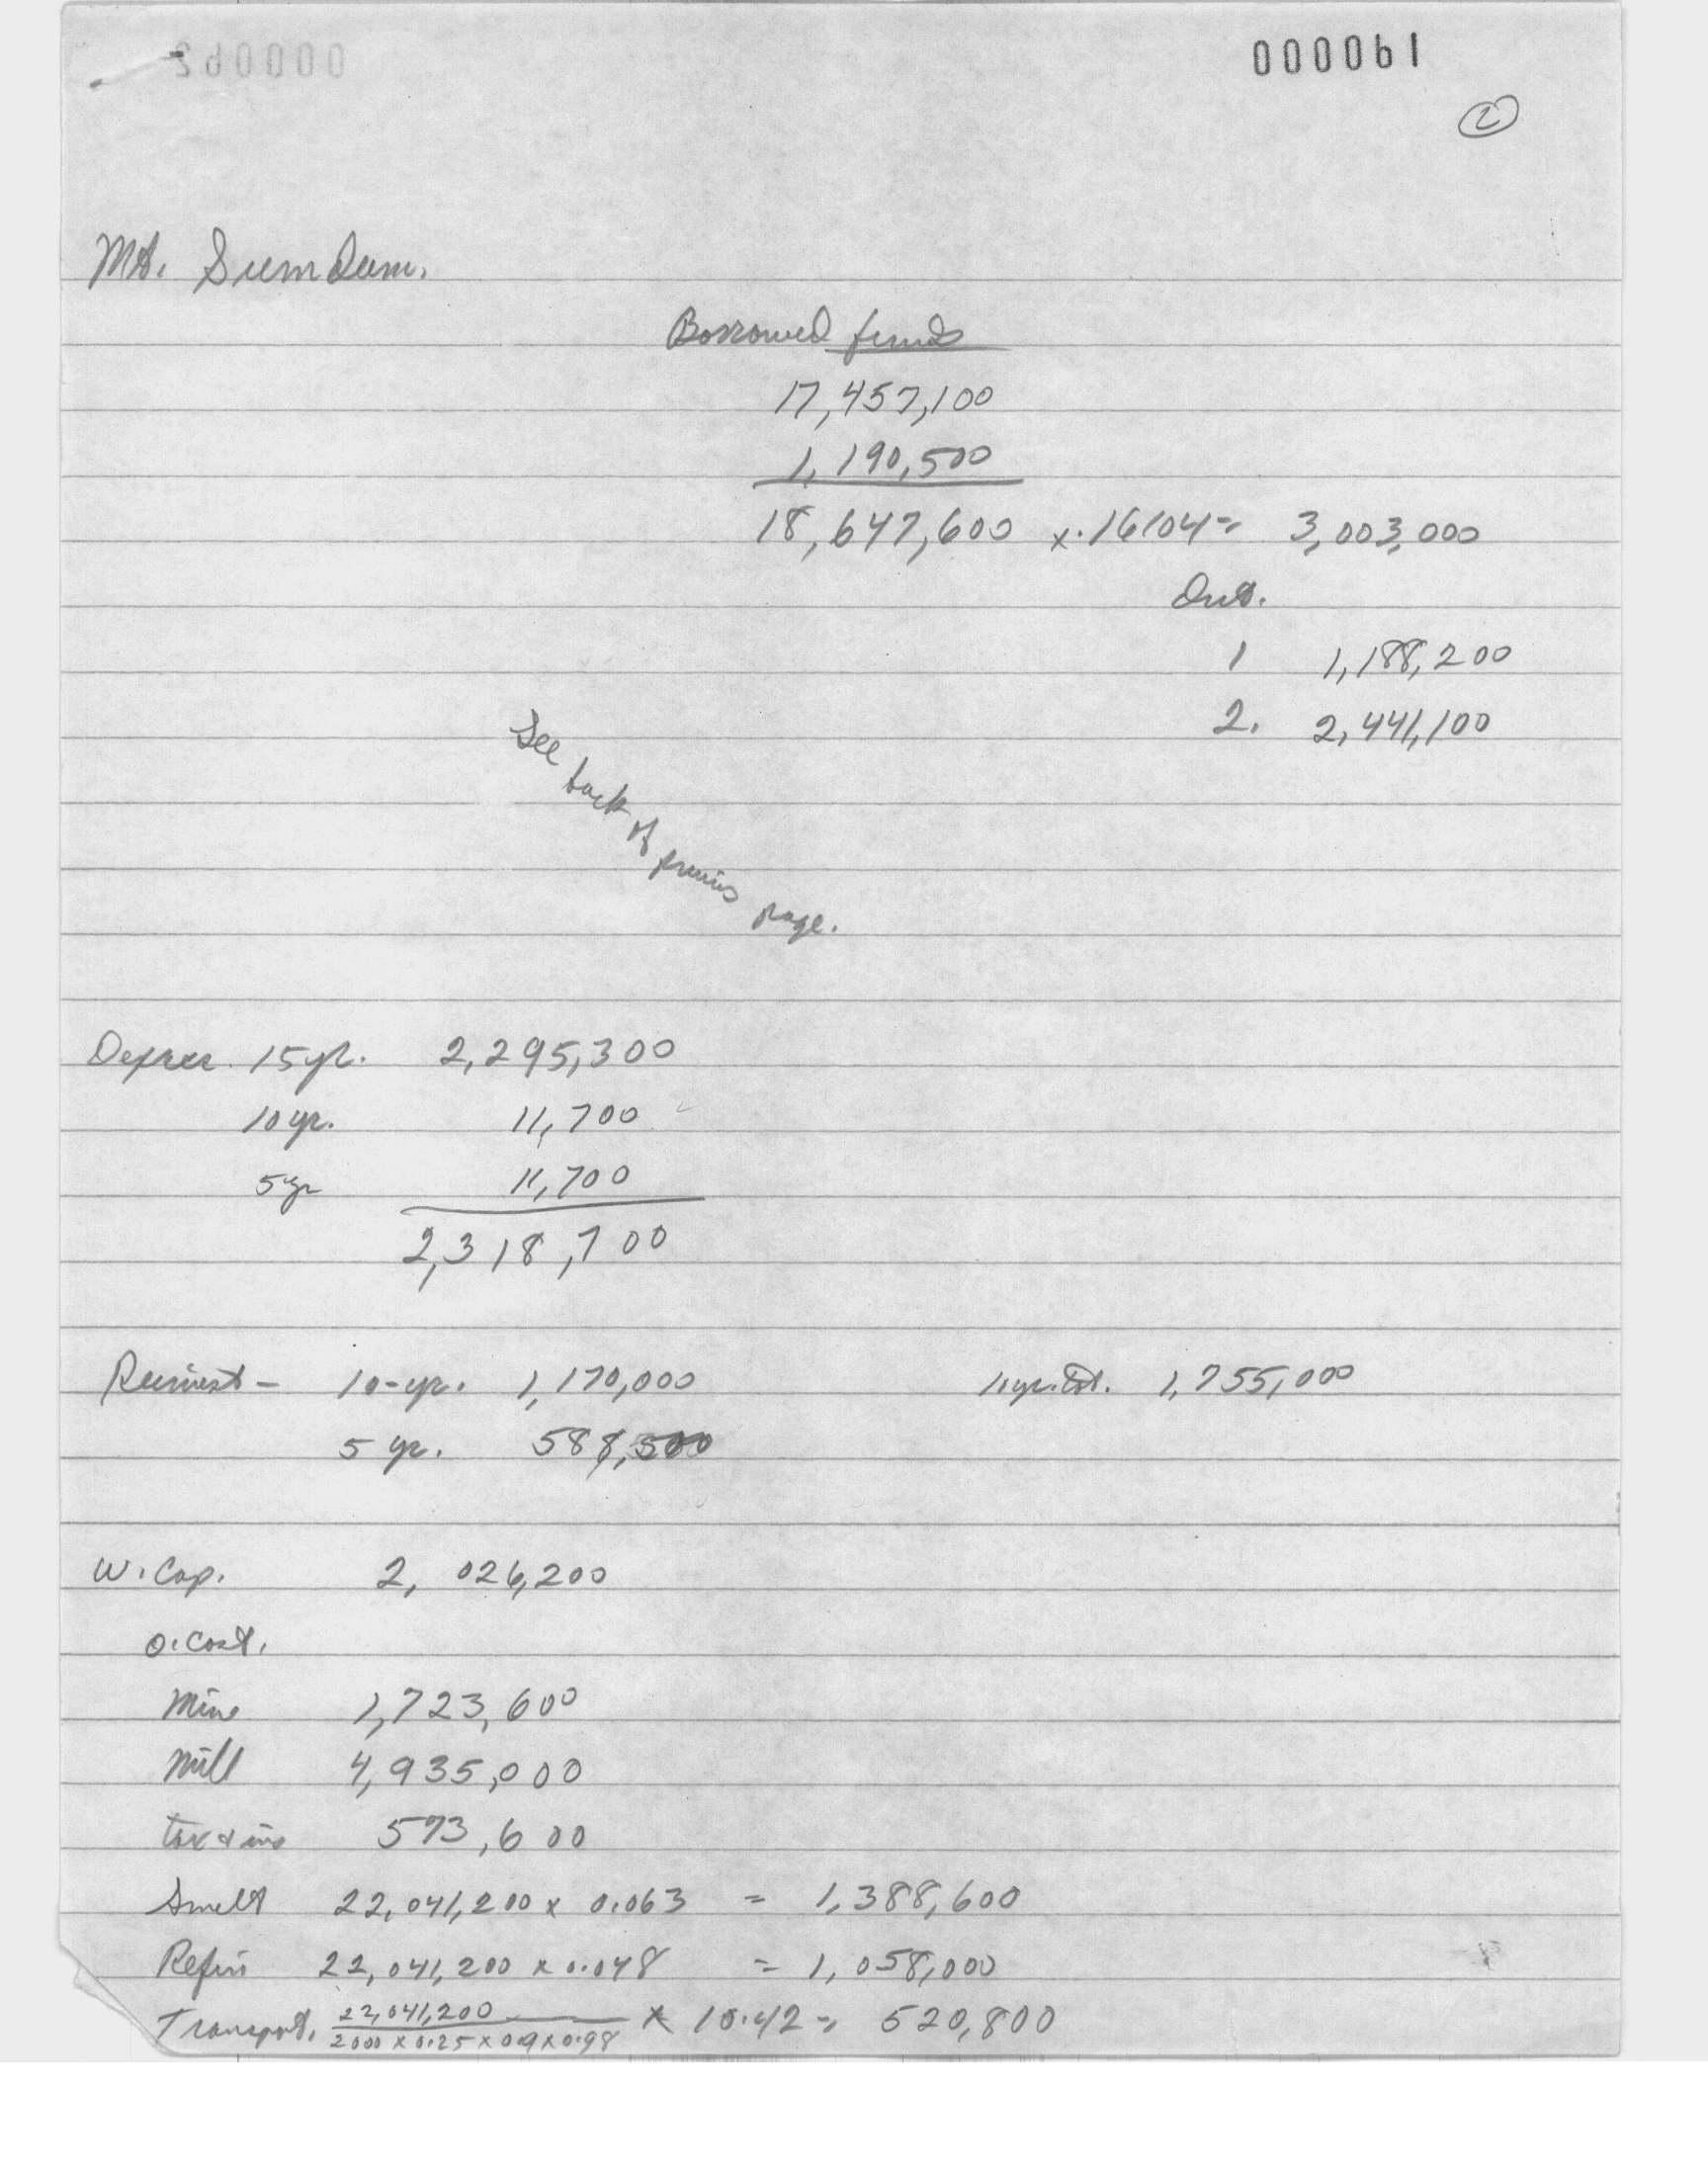 000061
2
Mt. Sumdum.
Borrowed funds
17,457,100
1,190,500
18,647,600 x .16104 = 3,003,000
Int.
1 1,188,200
2. 2,441,100
See back of previous page.
Deprec. 15 yr. 2,295,300
10 yr. 11,700
5 yr 11,700
2,318,700
Reinvest - 10-yr. 1,170,000 11 yr. tot. 1,755,000
5 yr. 588,500
W. Cap. 2,026,200
O. Cost.
Mine 1,723,600
Mill 4,935,000
tax & ins 573,600
Smelt 22,041,200 x 0.063 = 1,388,600
Refin 22,041,200 x 0.048 = 1,058,000
Transport. 22,041,200 / 2000 x 0.25 x 0.9 x 0.98 x 10.42 = 520,800